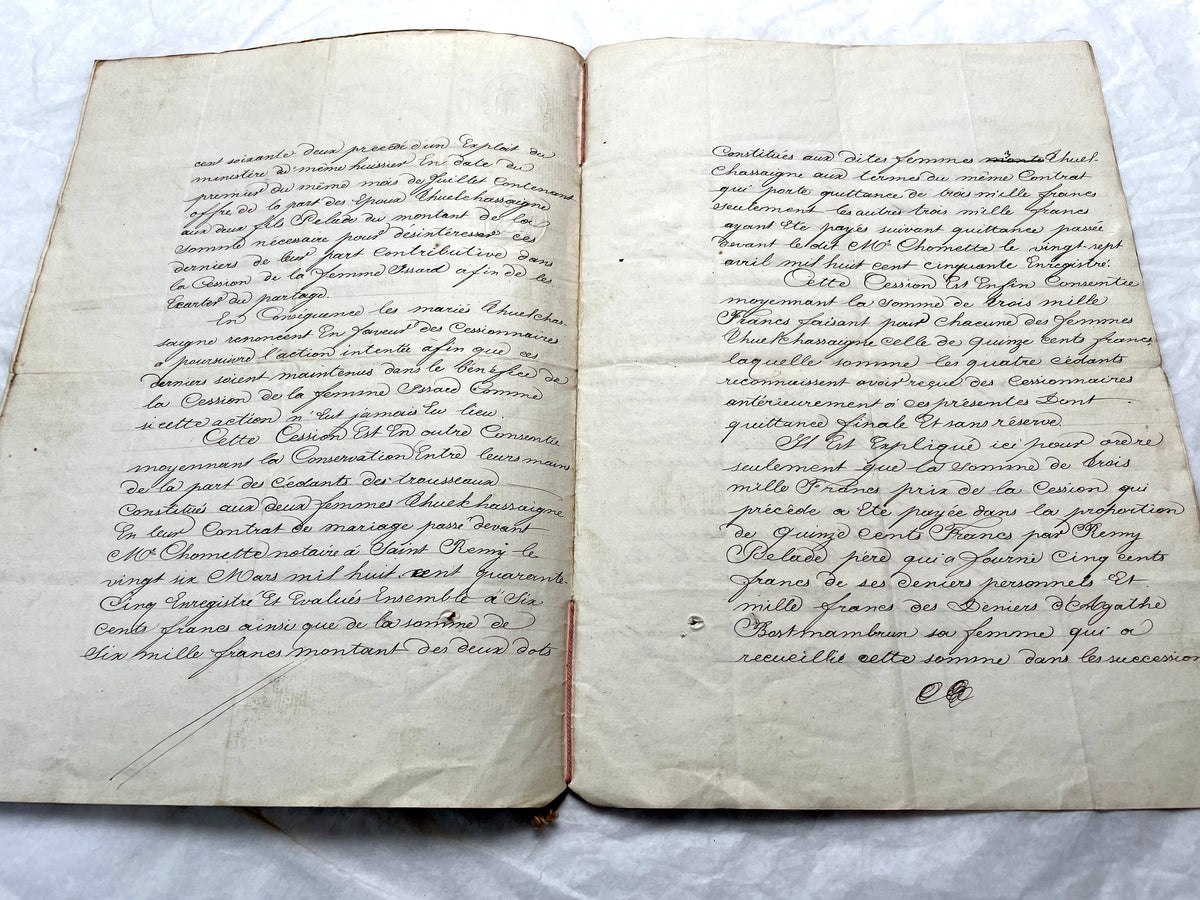 cent soixante deux precédé d'un Exploit du
ministère de même huissier En date du
premier du même mois de Juillet contenant
offre de la part des Epoux Thuel Chassaigne
aux deux fils Pelade du montant de la
somme nécessaire pour désintéresser ces
derniers de leur part contributive dans
la Cession de la femme Issard afin de les
Ecarter du partage.
En Conséquence les mariés Thuel chas-
saigne renoncent En faveur des Cessionnaires
a poursuivre l'action intentée afin que ces
derniers soient maintenus dans le bénéfice de
la Cession de la femme Issard Comme
si cette action n'Eut jamais Eu lieu.
Cette Cession Est En outre Consentie
moyennant la Conservation Entre leurs mains
de la part des cédants des trousseaux
Constitués aux deux femmes Thuel Chassaigne
En leur Contrat de mariage passé devant
Me Chomette notaire à Saint Remy le
vingt six Mars mil huit cent quarante
Cinq Enregistré Et Evalués Ensemble à Six
Cents francs ainsi que de la somme de
Six mille francs montant des deux dots
Constitués aux dites femmes Thuel
Chassaigne aux termes du même Contrat
qui porte quittance de trois mille francs
seulement les autres trois mille francs
ayant Eté payés suivant quittance passée
devant le dit Me Chomette le vingt-sept
avril mil huit cent cinquante Enregistré.
Cette Cession Est Enfin Consentie
moyennant la somme de trois mille
Francs faisant pour chacune des femmes
Thuel Chassaigne celle de quinze cents francs
laquelle somme les quatre cédants
reconnaissent avoir reçue des Cessionnaires
antérieurement a ces présentes Dont
quittance finale Et sans réserve.
Il Est Expliqué ici pour ordre
seulement que la somme de trois
mille Francs prix de la Cession qui
précède a Eté payée dans la proportion
de Quinze Cents Francs par Remy
Pelade père qui a fourni Cinq cents
francs de ses deniers personnels Et
mille francs des Deniers d'Agathe
Bostmambrun sa femme qui a
recueilli cette somme dans les succession